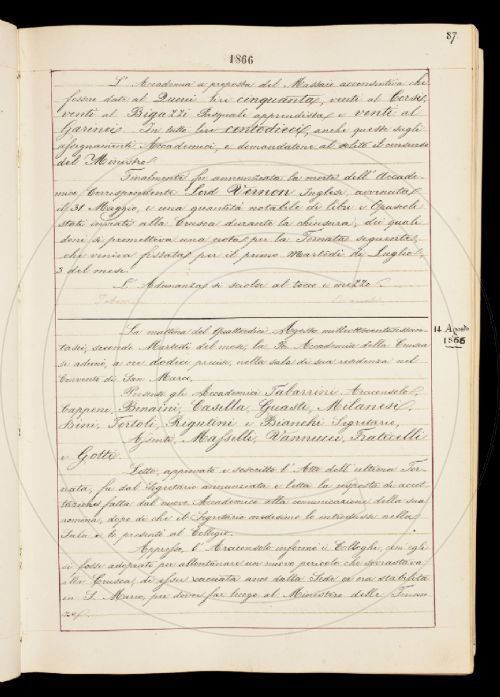 87.
1866
L'Accademia a proposta del Massaio acconsentiva che
fossero date al Querci lire cinquanta, venti al Corsi,
venti al Bigazzi Pasquale apprendista e venti al
Garinei. In tutto lire centodieci, anche queste sugli
assegnamenti Accademici, e domandatone al solito il consenso
del Ministro.
Finalmente fu annunziata la morte dell'Accade-
mico Corrispondente Lord Vernon Inglese, avvenuta
il 31 Maggio, e una quantità notabile di libri e Opuscoli
stati inviati alla Crusca durante la chiusura, dei quali
doni si prometteva una nota per la Tornata seguente,
che veniva fissata per il primo Martedì di Luglio,
3 del mese.
L'Adunanza si sciolse al tocco e mezzo.
14 Agosto
1866
La mattina del quattordici Agosto milleottocentosessan-
tasei, secondo Martedì del mese, la R. Accademia della Crusca
si adunò, a ore dodici precise, nella sala di sua residenza nel
Convento di San Marco.
Presenti gli Accademici Tabarrini Arciconsolo,
Capponi, Bonaini, Casella, Guasti, Milanesi,
Bini, Tortoli, Rigutini e Bianchi Segretario,
Assenti, Vannucci, Fraticelli
e Gotti.
Letto, approvato e soscritto l'Atto dell'ultima Tor-
nata, fu dal Segretario annunziata e letta la risposta di accet-
tazione fatta dal nuovo Accademico alla comunicazione della sua
nomina, dopo di che il Segretario medesimo lo introdusse nella
Sala, e lo presentò al Collegio.
Appresso, l'Arciconsolo informò i Colleghi, com'egli
si fosse adoprato per allontanare un nuovo pericolo che sovrastava
alla Crusca, di esser cacciata anco dalla Sede ov'ora stabilita
in S. Marco, per dover far luogo al Ministero delle Finan-
ze.